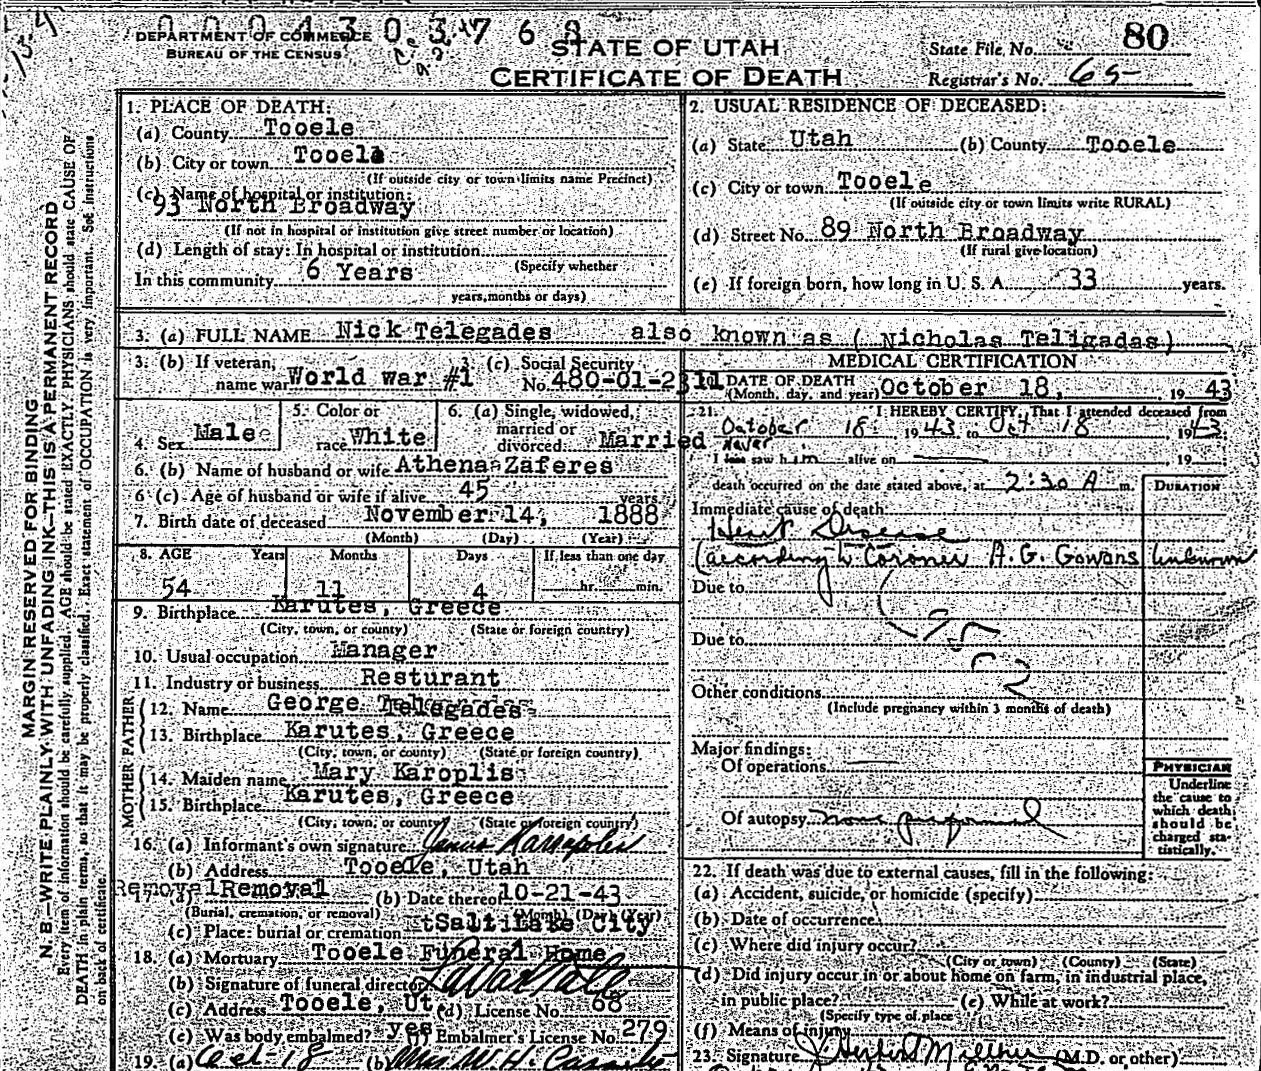 DEPARTMENT OF COMMERCE
BUREAU OF THE CENSUS
STATE OF UTAH
CERTIFICATE OF DEATH
State File No. 80
Registrar's No. 65
MARGIN RESERVED FOR BINDING
N. B.—WRITE PLAINLY WITH UNFADING INK—THIS IS A PERMANENT RECORD
Every item of information should be carefully supplied. AGE should be stated EXACTLY. PHYSICIANS should state CAUSE OF
DEATH in plain terms, so that it may be properly classified. Exact statement of OCCUPATION is very important. See instructions
on back of certificate.
1. PLACE OF DEATH:
(a) County Tooele
(b) City or town Tooele
(If outside city or town limits name Precinct)
(c) Name of hospital or institution:
93 North Broadway
(If not in hospital or institution give street number or location)
(d) Length of stay: In hospital or institution
(Specify whether
In this community 6 Years
years, months or days)
2. USUAL RESIDENCE OF DECEASED:
(a) State Utah (b) County Tooele
(c) City or town Tooele
(If outside city or town limits write RURAL)
(d) Street No. 89 North Broadway
(If rural give location)
(e) If foreign born, how long in U. S. A. 33 years.
3. (a) FULL NAME Nick Telegades also known as ( Nicholas Teligadas)
3. (b) If veteran, name war World war #1
3 (c) Social Security No. 480-01-2311
4. Sex Male
5. Color or race White
6. (a) Single, widowed, married or divorced. Married
6. (b) Name of husband or wife Athena Zaferes
6 (c) Age of husband or wife if alive 45 years
7. Birth date of deceased November 14, 1888
(Month) (Day) (Year)
8. AGE Years Months Days If less than one day
54 11 4 hr. min.
9. Birthplace Karutes, Greece
(City, town, or county) (State or foreign country)
10. Usual occupation Manager
11. Industry or business Resturant
FATHER
12. Name George Telegades
13. Birthplace Karutes, Greece
(City, town, or county) (State or foreign country)
MOTHER
14. Maiden name Mary Karoplis
15. Birthplace Karutes, Greece
(City, town, or county) (State or foreign country)
16. (a) Informant's own signature
(b) Address Tooele, Utah
17. (a) Removal (b) Date thereof 10-21-43
(Burial, cremation, or removal) (Month) (Day) (Year)
(c) Place: burial or cremation Salt Lake City
18. (a) Mortuary Tooele Funeral Home
(b) Signature of funeral director
(c) Address Tooele, Ut (d) License No. 68
(e) Was body embalmed? yes (f) Embalmer's License No. 279
19. (a) Oct-18 (b) Mrs. W. H.
MEDICAL CERTIFICATION
20. DATE OF DEATH
(Month, day, and year) October 18, 1943
21. I HEREBY CERTIFY, That I attended deceased from
October 18 1943 to Oct 18 1943.
never
I last saw him alive on 19
death occurred on the date stated above, at 2:30 A m.
DURATION
Immediate cause of death
Heart Disease
(according to Coroner A. G. Gowans Unknown
Due to
Due to
Other conditions
(Include pregnancy within 3 months of death)
Major findings:
Of operations
Of autopsy none performed
PHYSICIAN
Underline
the cause to
which death
should be
charged sta-
tistically.
22. If death was due to external causes, fill in the following:
(a) Accident, suicide, or homicide (specify)
(b) Date of occurrence
(c) Where did injury occur?
(City or town) (County) (State)
(d) Did injury occur in or about home on farm, in industrial place,
in public place? (e) While at work?
(Specify type of place
(f) Means of injury
23. Signature (M.D. or other)